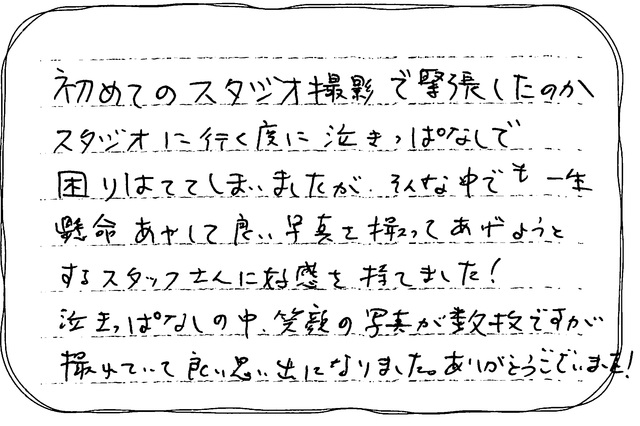 初めてのスタジオ撮影で緊張したのか
スタジオに行く度に泣きっぱなしで
困りはててしまいましたが、そんな中でも一生
懸命あやして良い写真を撮ってあげようと
するスタッフさんに好感を持てました!
泣きっぱなしの中、笑顔の写真が数枚ですが
撮れていて良い思い出になりました。ありがとうございました!